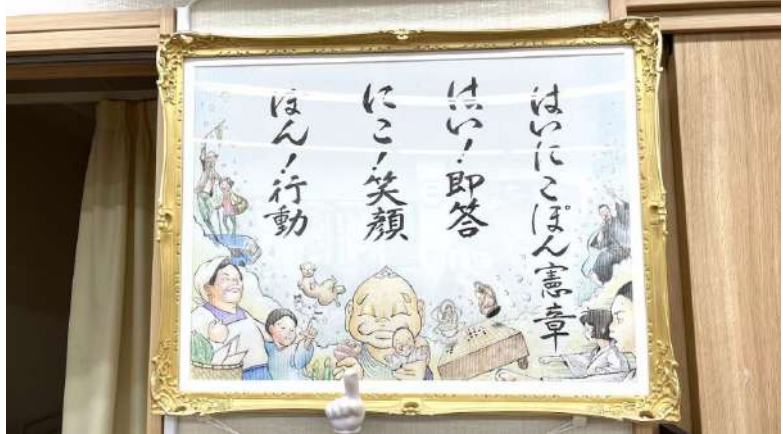 はいにこぽん憲章
はい！即答
にこ！笑顔
ぽん！行動